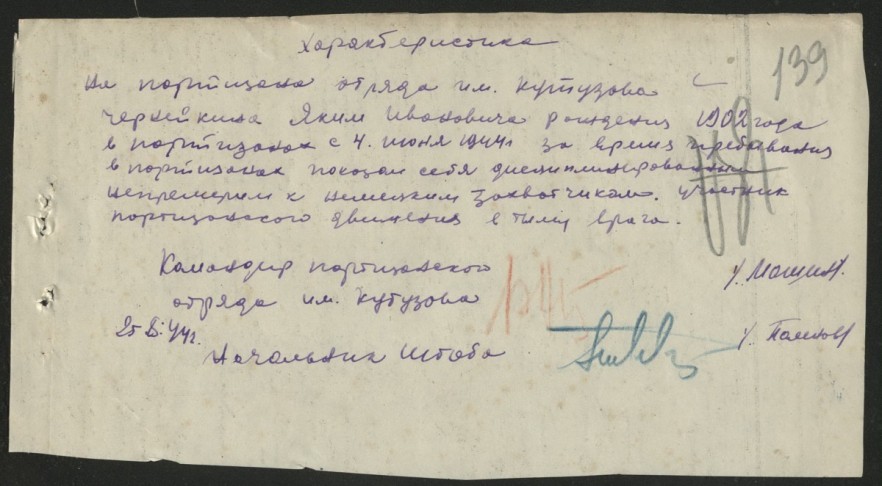 характеристика
139
на партизана отряда им. Кутузова
Чернейкина Яким Ивановича рождения 1902 года
в партизанах с 4. июня 1944г за время пребывания
в партизанах показал себя дисциплинированным
непремерим к немецким захватчикам. участник
партизанского движения в тылу врага.
Командир партизанского
отряда им. Кутузова
Начальник штаба